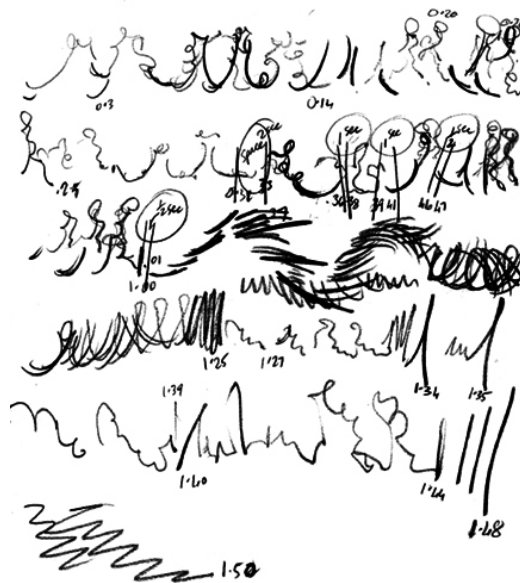 0·20
0·3 0·14
2 sec 1 sec 1 sec 1 sec
space
·25 38 39 41 46 47
1/2 sec
1·00 1·01
1·25 1·27 1·34 1·35
1·39
1·40 1·44
1·48
1·50